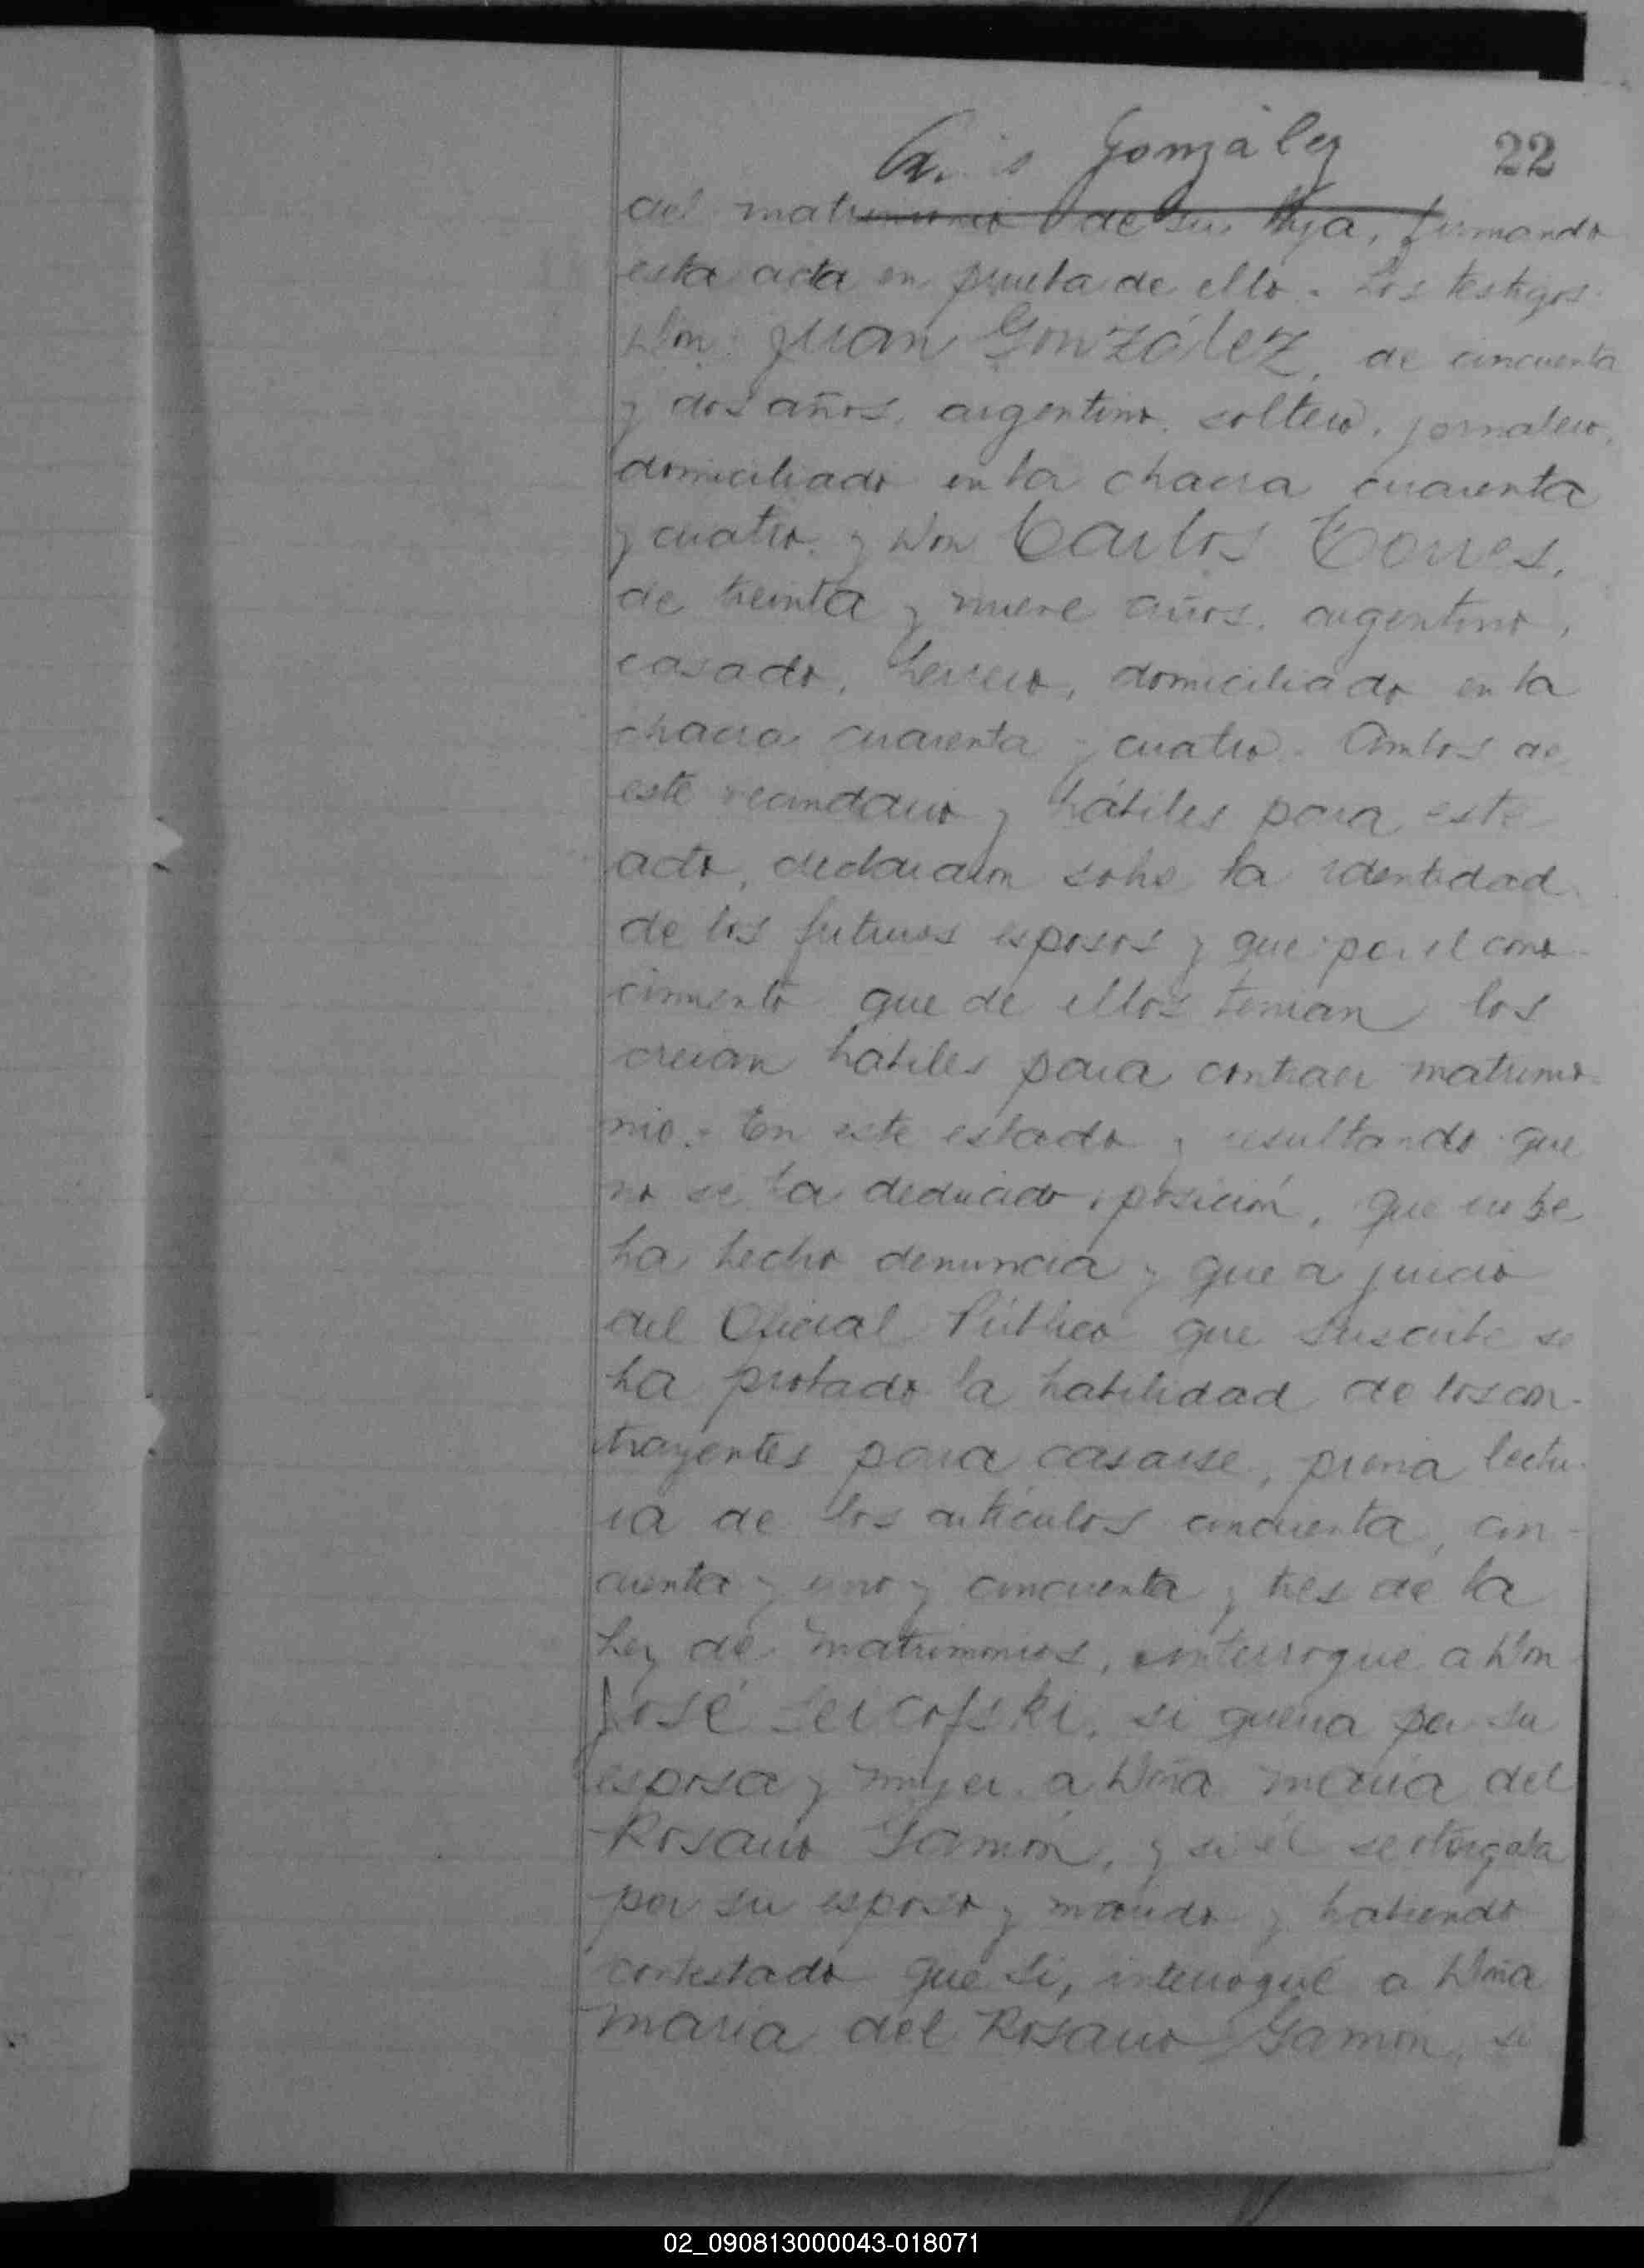 González
22
del matrimonio de su hija, firmando
esta acta en prueba de ello. Los testigos
Don Juan González, de cincuenta
y dos años, argentino, soltero, jornalero,
domiciliado en la chacra cuarenta
y cuatro, y Don Carlos Torres,
de treinta y nueve años, argentino,
casado, herrero, domiciliado en la
chacra cuarenta y cuatro. Ambos de
este vecindario y hábiles para este
acto, declararon sobre la identidad
de los futuros esposos y que por el cono
cimiento que de ellos tenian los
creian hábiles para contraer matrimo-
nio.- En este estado y resultando que
no se ha deducido oposición, que no se
ha hecho denuncia y que a juicio
del Oficial Público que suscribe se
ha probado la habilidad de los con-
trayentes para casarse, previa lectu-
ra de los artículos cincuenta, cin-
cuenta y uno y cincuenta y tres de la
Ley de Matrimonios, interrogué a Don
José Seicofski, si queria por su
esposa y mujer a Doña María del
Rosario Gamón, y si él se otorgaba
por su esposo y marido y habiendo
contestado que si, interrogué a Doña
María del Rosario Gamón, si
02_090813000043-018071